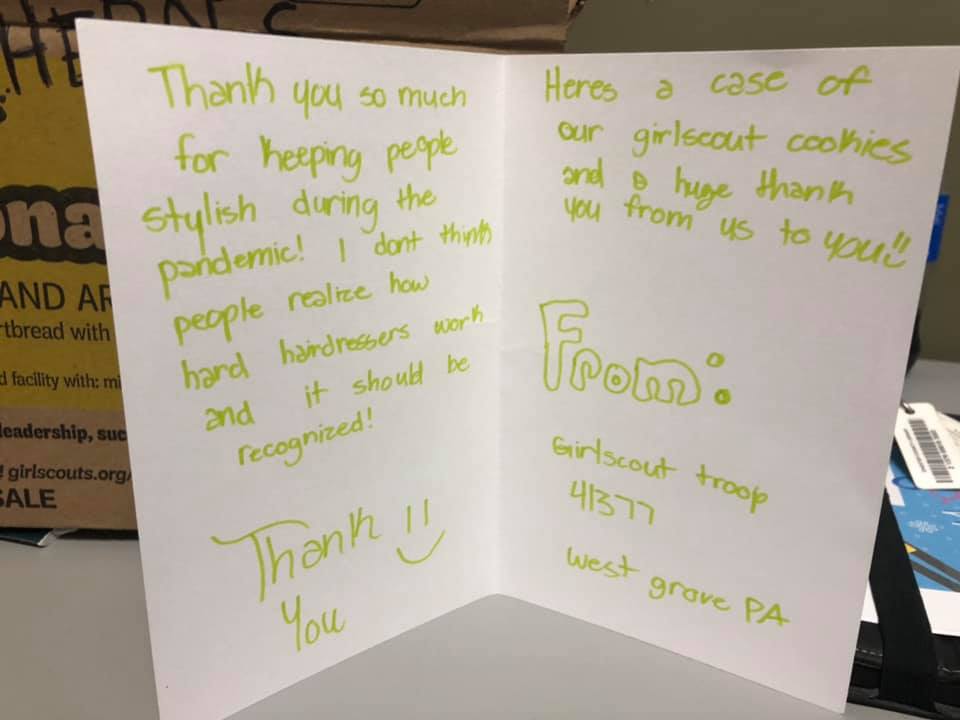 Thank you so much
for keeping people
stylish during the
pandemic! I dont think
people realize how
hard hairdressers work
and it should be
recognized!
Thank !!
You
Heres a case of
our girlscout cookies
and a huge thank
you from us to you!!
From:
Girlscout troop
41377
west grove PA
ona
AND AR
rtbread with
d facility with: mi
leadership, suc
! girlscouts.org/
SALE